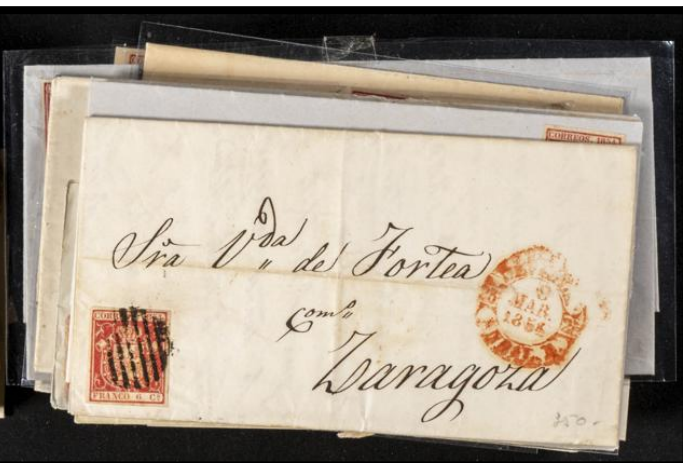 CORREOS 1854
Sra V.da de Fortea
com.º
Zaragoza
8
MAR
1854
FRANCO 6. Cs
350.-